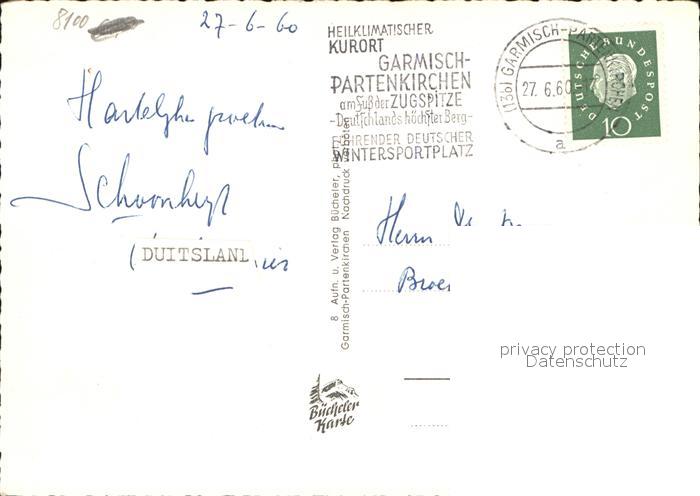 8100
27-6-60
HEILKLIMATISCHER
KURORT
GARMISCH-
PARTENKIRCHEN
am Fuß der ZUGSPITZE
-Deutschlands höchster Berg-
FÜHRENDER DEUTSCHER
WINTERSPORTPLATZ
(13b) GARMISCH-PARTENKIRCHEN
27. 6.60
a
DEUTSCHE BUNDESPOST
10
Hartelijke groeten
DUITSLAND
8 Aufn. u. Verlag Bücheler,
Garmisch-Partenkirchen Nachdruck verboten
Herrn
privacy protection
Datenschutz
Bücheler
Karte